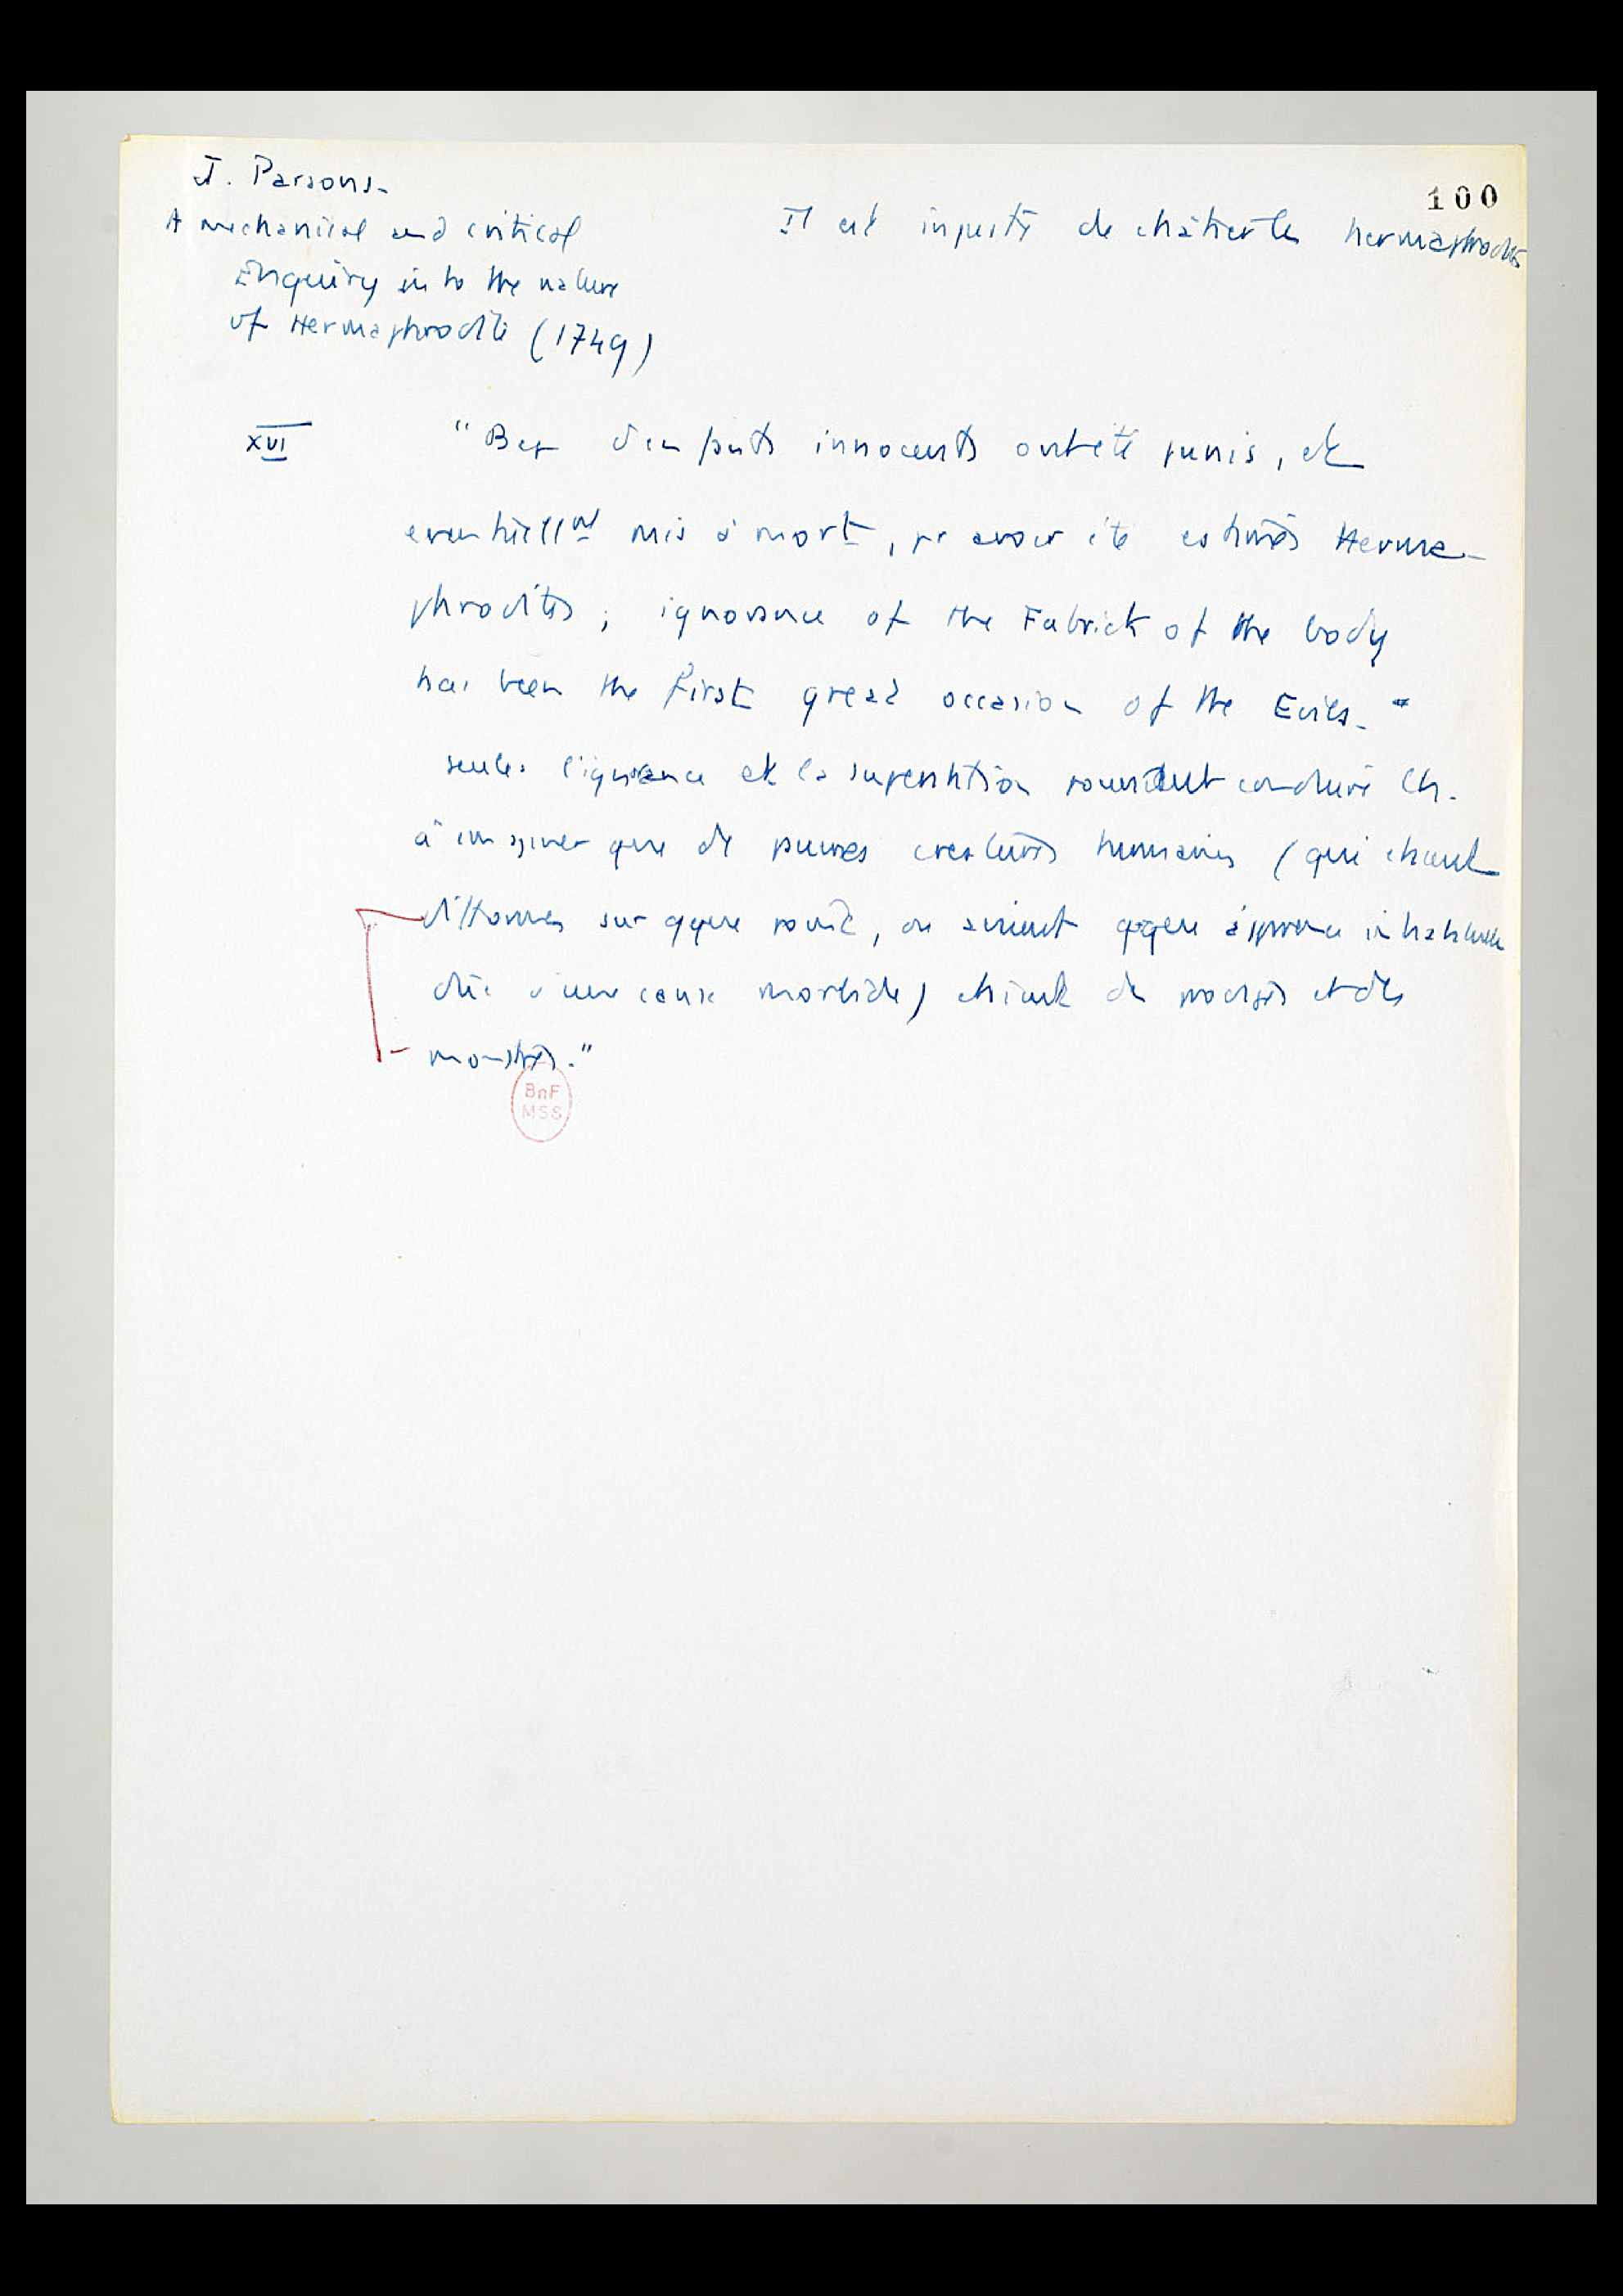 100
J. Parsons.
A mechanical and critical
Enquiry into the nature
of Hermaphrodites (1749)
Il est injuste de châtier les hermaphrodites
XVI
"Bcp d'enfants innocents ont été punis, et
eventuellnt mis à mort, pr avoir été estimés Herma-
phrodites ; ignorance of the Fabrick of the body
has been the first great occasion of the Evils."
seules l'ignorance et la superstition pouvaient conduire les h.
à imaginer que de pures creatures humaines (qui étaient
difformes sur qque point, ou avaient qque apparence inhabituelle
due à une cause morbide) étaient des prodiges et des
monstres."
BnF
MSS